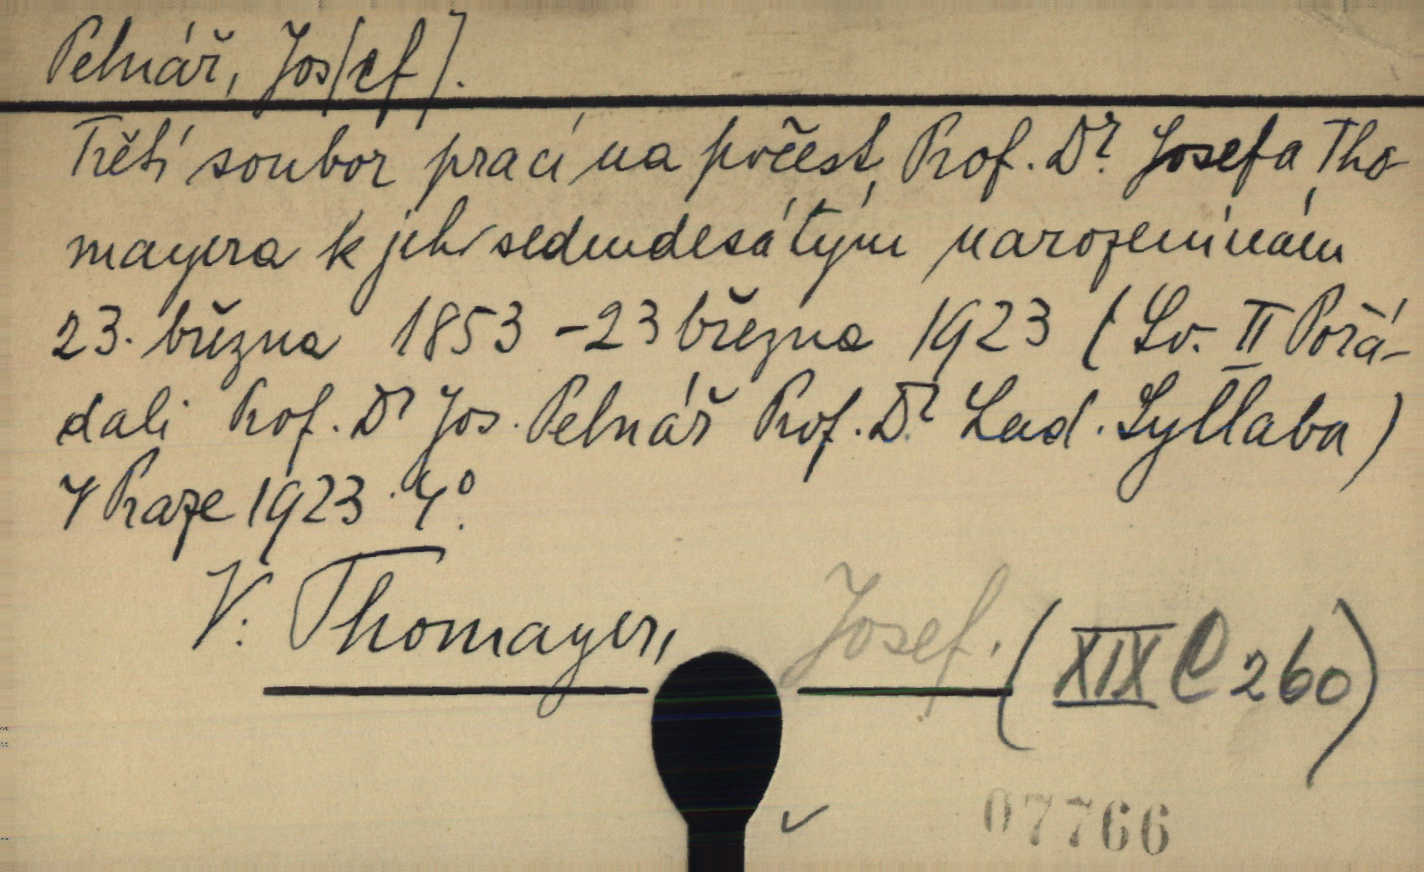 Pelnář, Jos[ef].
Třetí soubor prací na počest Prof. Dr. Josefa Tho-
mayera k jeho sedmdesátým narozeninám
23. března 1853 - 23 března 1923 (Sv. II Pořá-
dali Prof. Dr Jos. Pelnář Prof. Dr. Lad. Syllaba)
V Praze 1923. 4°.
V: Thomayer, Josef. (XIX C 260)
07766